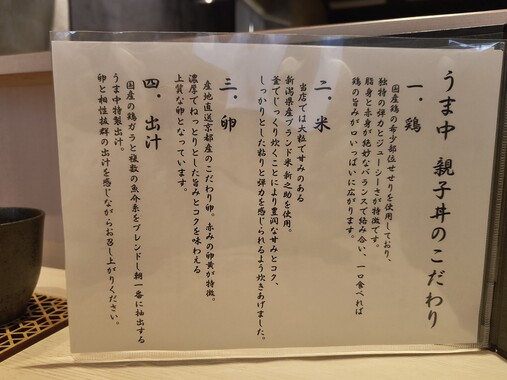 うま中 親子丼のこだわり
一．鶏
国産鶏の希少部位せせりを使用しており、
独特の弾力とジューシーさが特徴です。
脂身と赤身が絶妙なバランスで絡み合い、一口食べれば
鶏の旨みが口いっぱいに広がります。
二．米
当店では大粒で甘みのある
新潟県産ブランド米 新之助を使用。
釜でじっくり炊くことにより豊潤な甘みとコク、
しっかりとした粘りと弾力を感じられるよう炊きあげました。
三．卵
産地直送京都産のこだわり卵。赤みの卵黄が特徴。
濃厚でねっとりとした旨みとコクを味わえる
上質な卵となっています。
四．出汁
国産の鶏ガラと複数の魚介系をブレンドし朝一番に抽出する
うま中特製出汁。
卵と相性抜群の出汁を感じながらお召し上がりください。